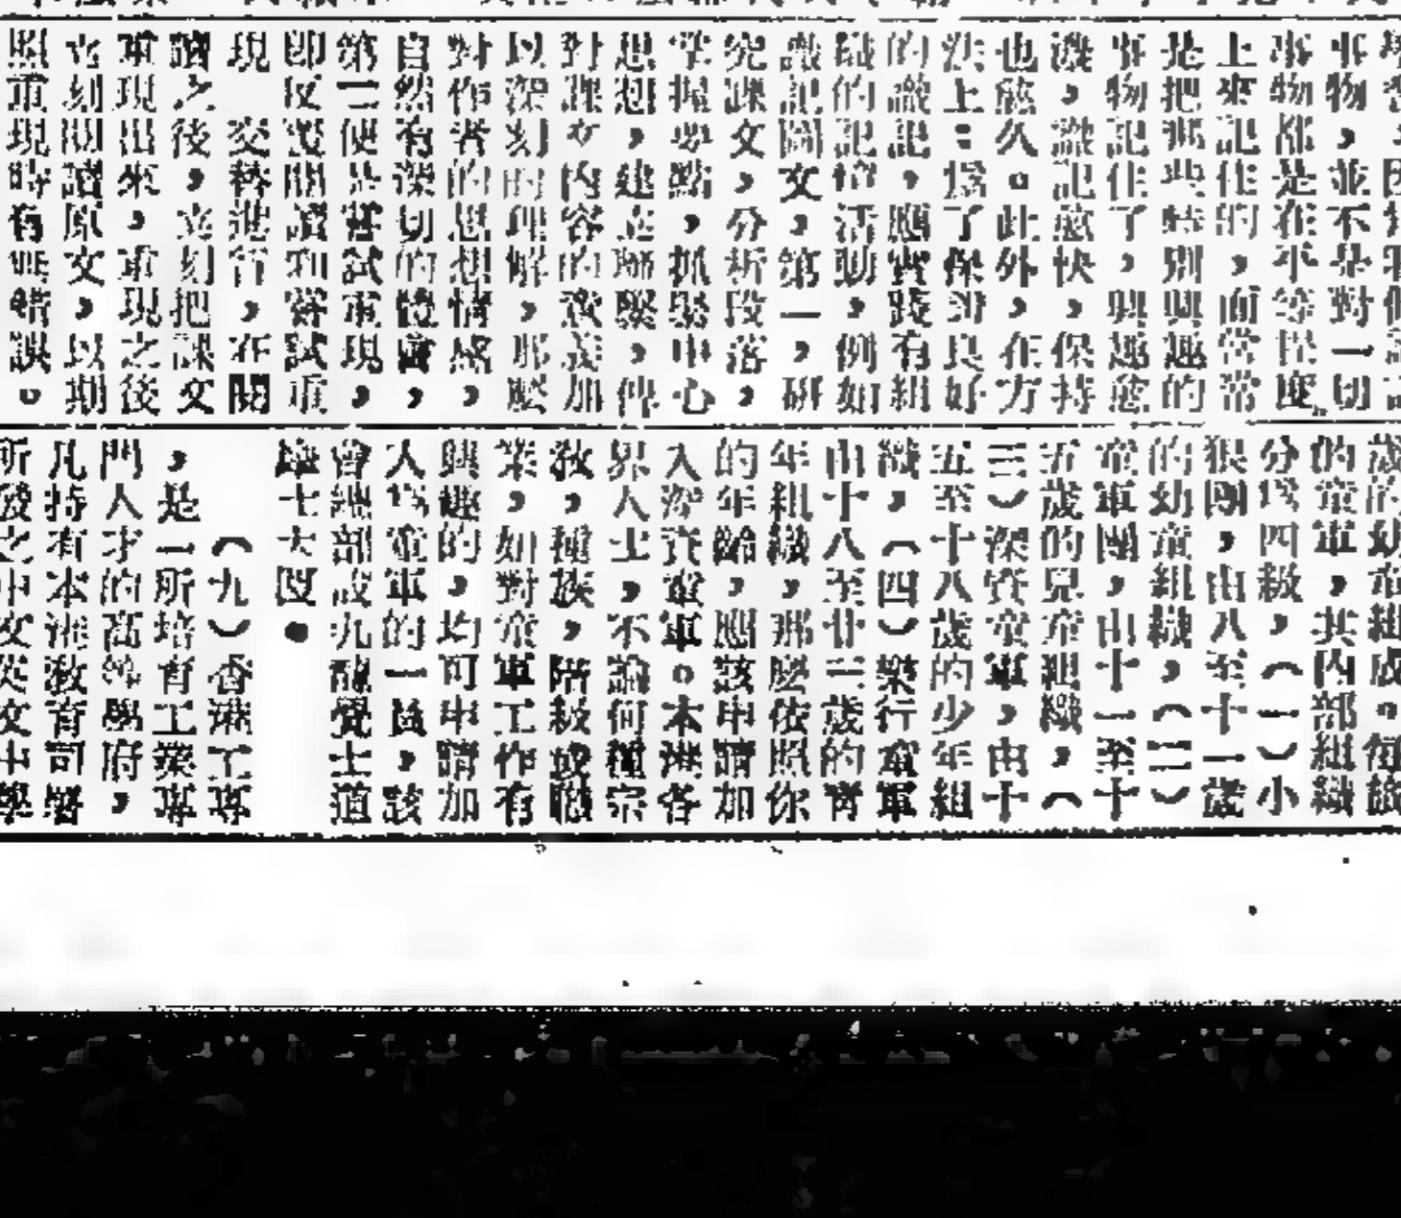 事物，並不是對一切
事物都是在平等程度
上來記住的，而常常
是把那些特別興趣的
事物記住了，興趣愈
濃，識記愈快，保持
也愈久。此外，在方
法上：為了保證良好
的識記，應實踐有組
織的記憶活動，例如
識記閱文，第一，研
究課文，分析段落，
掌握要點，抓緊中心
思想，建立聯繫，俾
對課文內容的意義加
以深刻的理解，那麼
對作者的思想情感，
自然有深切的體會，
第二便是嘗試重現，
即反覆閱讀和嘗試重
現　交替進行，在閱
讀之後，立刻把課文
重現出來，重現之後
立刻閱讀原文，以期
照重現時有無錯誤。
歲的幼童組成。每旅
的童軍，共內部組織
分為四級，（一）小
狼團，由八至十一歲
的幼童組織，（二）
童軍團，由十一至十
五歲的兒童組織，（
三）深資童軍，由十
五至十八歲的少年組
織，（四）樂行童軍
由十八至廿三歲的青
年組織，那麼依照你
的年齡，應該申請加
入深資童軍。本港各
界人士，不論何種宗
教，種族，階級或職
業，如對童軍工作有
興趣的，均可申請加
入為童軍的一員，該
會總部設九龍覺士道
童士大厦●
（九）香港工專
，是一所培育工業專
門人才的高等學府，
凡持有本港教育司署
所發之中文英文中學